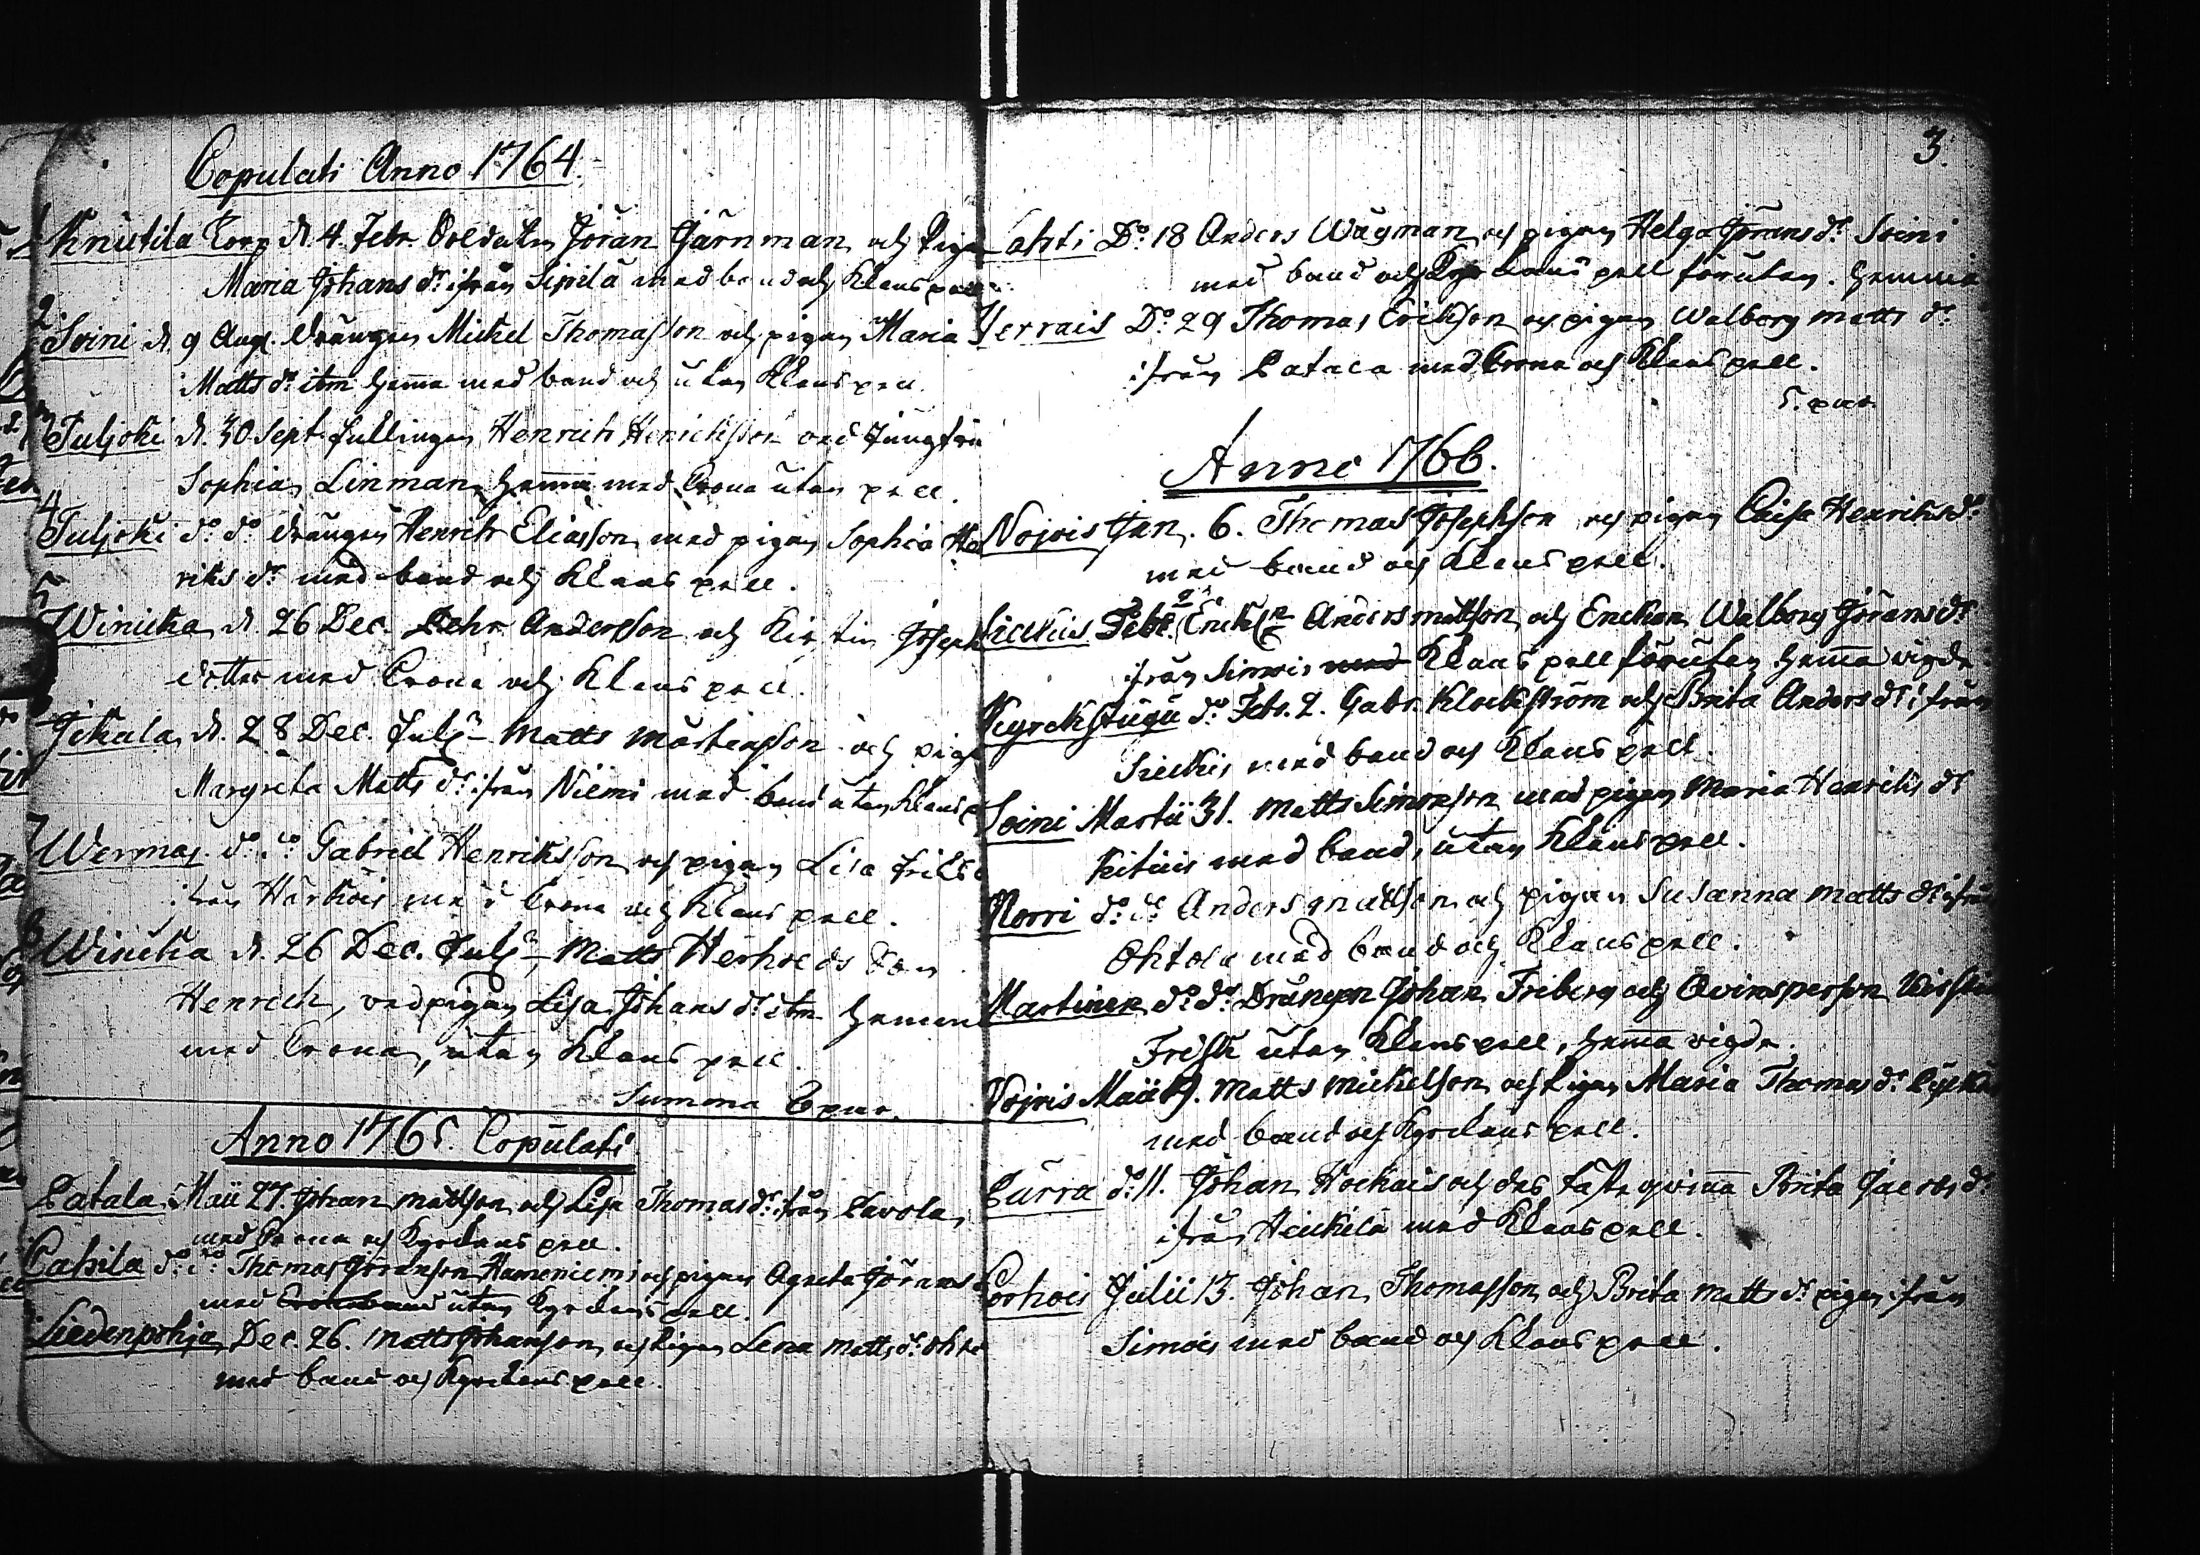 Copulati Anno 1764.
1 Knuutila Torp d. 4. Febr. Soldaten Jöran Järnman och Pigan
Maria Johans dr. ifrån Sipilä med band och Klens pell
2. Soini d. 9 Aug. drängen Mickel Thomasson och pigan Maria
Matts dr. itm hema med band och utan Klens pell
3 Juljoki d. 30 Sept. Henrich Henrichsson med Jungfru
Sophia Linman hema med Crona utan pell.
4 Juljoki do. do. drängen Henrich Eliasson med pigan Sophia Hen
riks dr. med band och Klens pell.
5 Winicka d. 26 Dec. Pehr Andersson och Kirstin Joseph
dotter med Crona och Klens pell.
6 Jokala d. 28 Dec. Matts Mårtensson och piga
Margreta Matts dr. ifrån Niemi med band utan Klens p
7 Wermas do. do. Gabriel Henriksson och pigan Lisa Eriks d
ifrån Härköis med Crona och Klens pell.
8 Winicka d. 26 Dec. Matts Son
Henrich, med pigan Lisa Johans dr. itm hemma
med Crona, utan Klens pell.
Summa 8 par.
Anno 1765. Copulati
Patala Maii 27. Johan Mattson och Lisa Thomas dr. ifrån Pavola
med Crona och Kyrckens pell.
Cahila do. do. Thomas Göransson Hameniemi och pigan Agneta Görans
med utan Kyrckens pell.
Liedenpohja Dec. 26. Matts Johanson och Pigan Lena Matts dr.
med band och Kyrckens pell.
3.
Lahti Do. 18 Anders Wägman och pigan Helga Jörans dr. Soini
med band och pell förutan. hemma
Verrais Do. 29 Thomas Erikson och pigan Walborg Matts dr.
ifrån Patala med Crona och Klens pell.
5. par
Anno 1766.
Nojois Jan. 6. Thomas Josephson och pigan Caisa Henriks dr.
med band och Klens pell.
Febr. 2 Anders Mattson och Enckan Walborg Jörans dr
ifrån Simois med Klens pell förutan hema wigde
Kyrckstugu do. Febr. 2. Gabr. Klockström och Brita Anders dr. ifrån
med band och Klens pell.
Soini Martii 31. Matts Simonson med pigan Maria Henriks dr
med band, utan Klens pell.
Norri do. do. Anders Mattson och pigan Susanna Matts dr. ifrån
Ohtola med band och Klens pell.
Martinen do. do. Drängen Johan Friberg och Qvinsperson
Frisk utan Klens pell, hema wigde.
Nojois Maii 19. Matts Mickelson och Pigan Maria Thomas dr.
med band och Kyrckens pell.
Purra do. 11. Johan och des fäste qvinna Brita Jacobs dr.
ifrån Heickilä med Klens pell.
Porhois Julii 13. Johan Thomasson och Brita Matts dr. pigan ifrån
Simois med band och Klens pell.